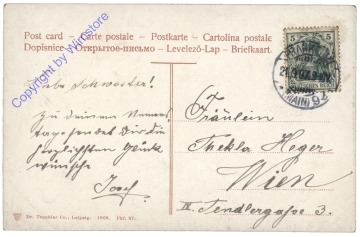 Post card — Carte postale — Postkarte — Cartolina postale
Dopisnice — Открытое письмо — Levelező-Lap — Briefkaart.
Copyright by Winstore
5 5
FRANKFURT
(MAIN) 9
Liebe Schwester!
Zu deinem Namens-
tage sendet Dir die
herzlichsten Glück
wünsche
Josef
Fräulein
Thekla Heger
Wien
Tendlergaße 3.
Dr. Trenkler Co., Leipzig. 1906. Fkf. 87.